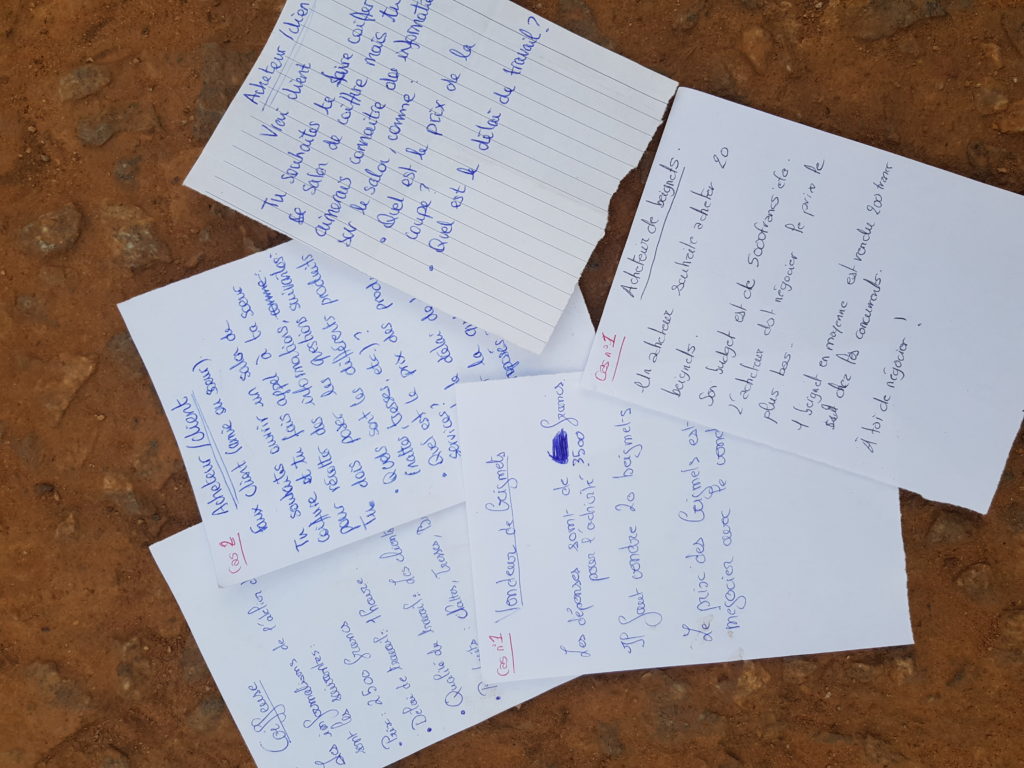 Coiffeuse
Les informations de l'atelier d
sont les suivantes:
• Prix: 2500 francs
• Délai de travail: 1 heure.
• Qualité du travail: Les clients
Nattes, Tresses, B
Cas 2
Acheteur/client
Faux client (amie ou sœur)
Tu souhaites ouvrir un salon de
coiffure et tu fais appel à ta sœur
pour récolter des informations, comme
Tu dois poser les questions suivantes:
• Quels sont les différents produits
(nattes, tresses, etc.) ?
• Quel est le prix des prod
services?
le délai de
la qu
posés
Acheteur/clien
Vrai client
Tu souhaites te faire coiffer
le salon de coiffure mais tu
aimerais connaître des informati
sur le salon, comme :
• Quel est le prix de la
coupe ?
• Quel est le délai de travail?
Cas n°1
Vendeur de Beignets
Les dépenses sont de francs
pour l'activité. 3500
Il faut vendre 20 beignets
Le prix des Beignets est
negocier avec le vend
Cas n°1
Acheteur de beignets.
Un acheteur souhaite acheter 20
beignets.
Son budget est de 5000francs cfa.
L'acheteur doit négocier le prix le
plus bas.
1 beignet en moyenne est vendu 200 francs
chez les concurrents.
À toi de négocier !